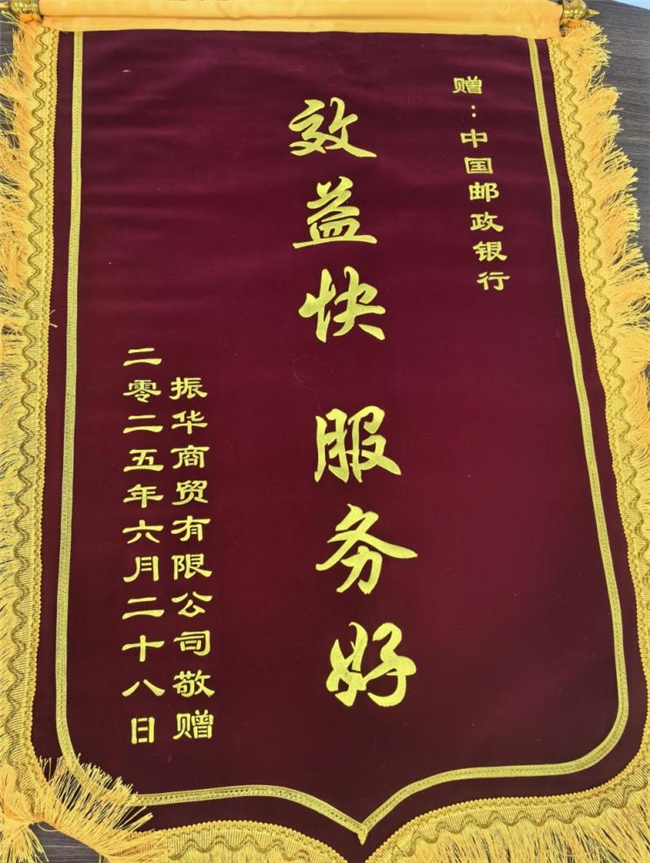 赠：中国邮政银行
效益快 服务好
振华商贸有限公司敬赠
二零二五年六月二十八日